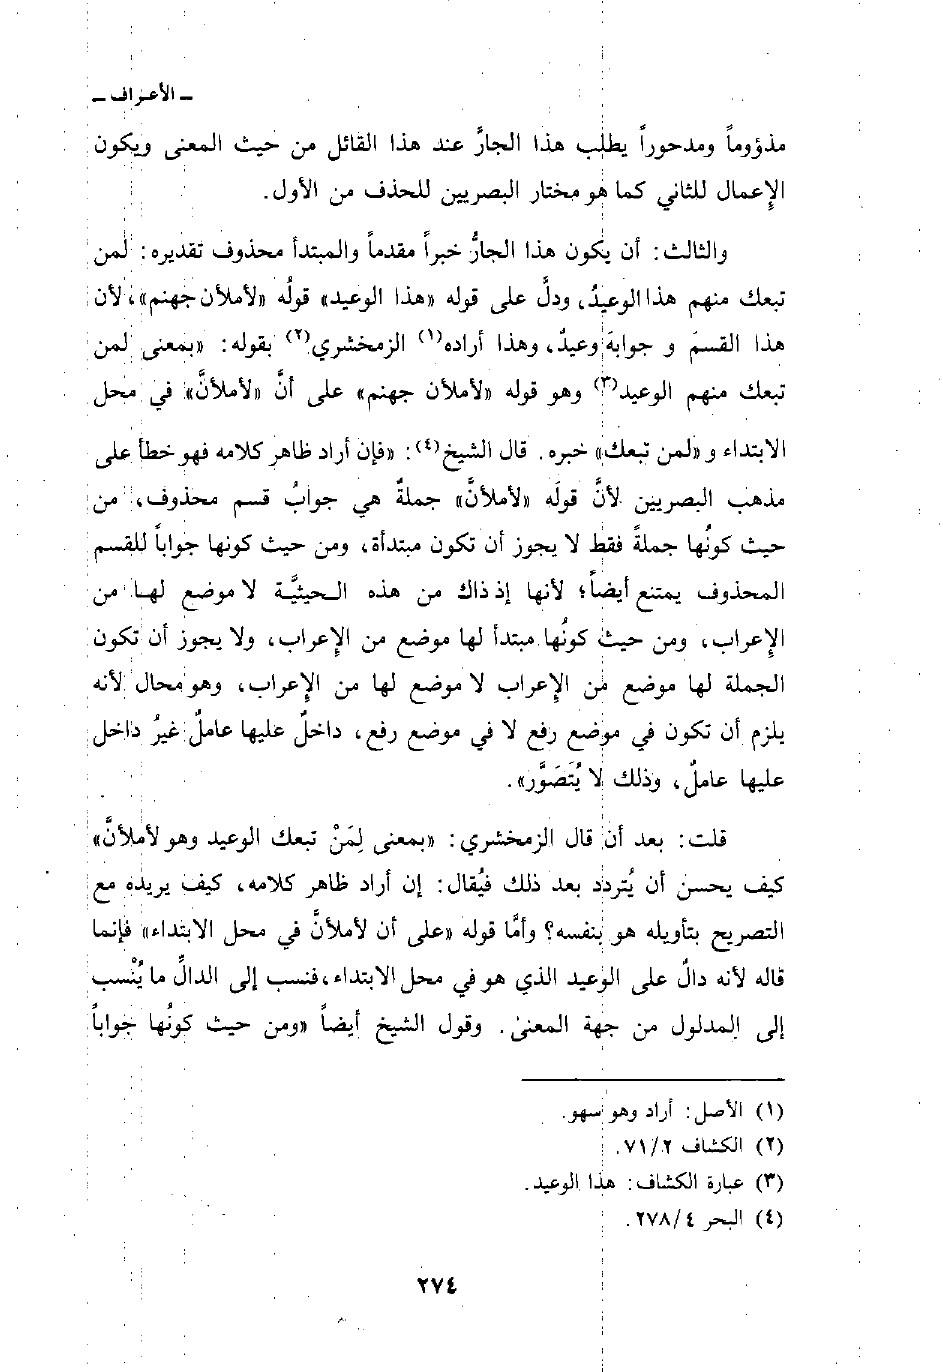 ـ الأعراف ـ
مذؤوماً ومدحوراً يطلب هذا الجارَّ عند هذا القائل من حيث المعنى ويكون
الإِعمال للثاني كما هو مختار البصريين للحذف من الأول.
والثالث: أن يكون هذا الجارُّ خبراً مقدماً والمبتدأ محذوف تقديره: لَمن
تبعك منهم هذا الوعيدُ، ودلَّ على قوله «هذا الوعيد» قولُه «لأملأن جهنم»، لأن
هذا القسمَ و جوابَه وعيدٌ، وهذا أراده(١) الزمخشري(٢) بقوله: «بمعنى لمن
تبعك منهم الوعيد(٣) وهو قوله «لأملأن جهنم» على أنَّ «لأملأنَّ» في محل
الابتداء و «لمن تبعك» خبره. قال الشيخ(٤): «فإن أراد ظاهر كلامه فهو خطأ على
مذهب البصريين لأنَّ قولَه «لأملأنَّ» جملةٌ هي جوابُ قسم محذوف، من
حيث كونُها جملةً فقط لا يجوز أن تكون مبتدأة، ومن حيث كونها جواباً للقسم
المحذوف يمتنع أيضاً؛ لأنها إذ ذاك من هذه الحيثيَّة لا موضع لها من
الإِعراب، ومن حيث كونُها مبتدأ لها موضع من الإِعراب، ولا يجوز أن تكون
الجملة لها موضع من الإِعراب لا موضع لها من الإِعراب، وهو محال لأنه
يلزم أن تكون في موضع رفع لا في موضع رفع، داخلٌ عليها عاملٌ غيرُ داخل
عليها عاملٌ، وذلك لا يُتَصَوَّر».
قلت: بعد أن قال الزمخشري: «بمعنى لِمَنْ تبعك الوعيد وهو لأملأنَّ»
كيف يحسن أن يُتردد بعد ذلك فيُقال: إن أراد ظاهر كلامه، كيف يريده مع
التصريح بتأويله هو بنفسه؟ وأمَّا قوله «على أن لأملأنَّ في محل الابتداء» فإنما
قاله لأنه دالٌ على الوعيد الذي هو في محل الابتداء، فنسب إلى الدالِّ ما يُنْسب
إلى المدلول من جهة المعنىٰ. وقول الشيخ أيضاً «ومن حيث كونُها جواباً
(١) الأصل: أراد وهو سهو.
(٢) الكشاف ٢/ ٧١.
(٣) عبارة الكشاف: هذا الوعيد.
(٤) البحر ٤/ ٢٧٨.
٢٧٤